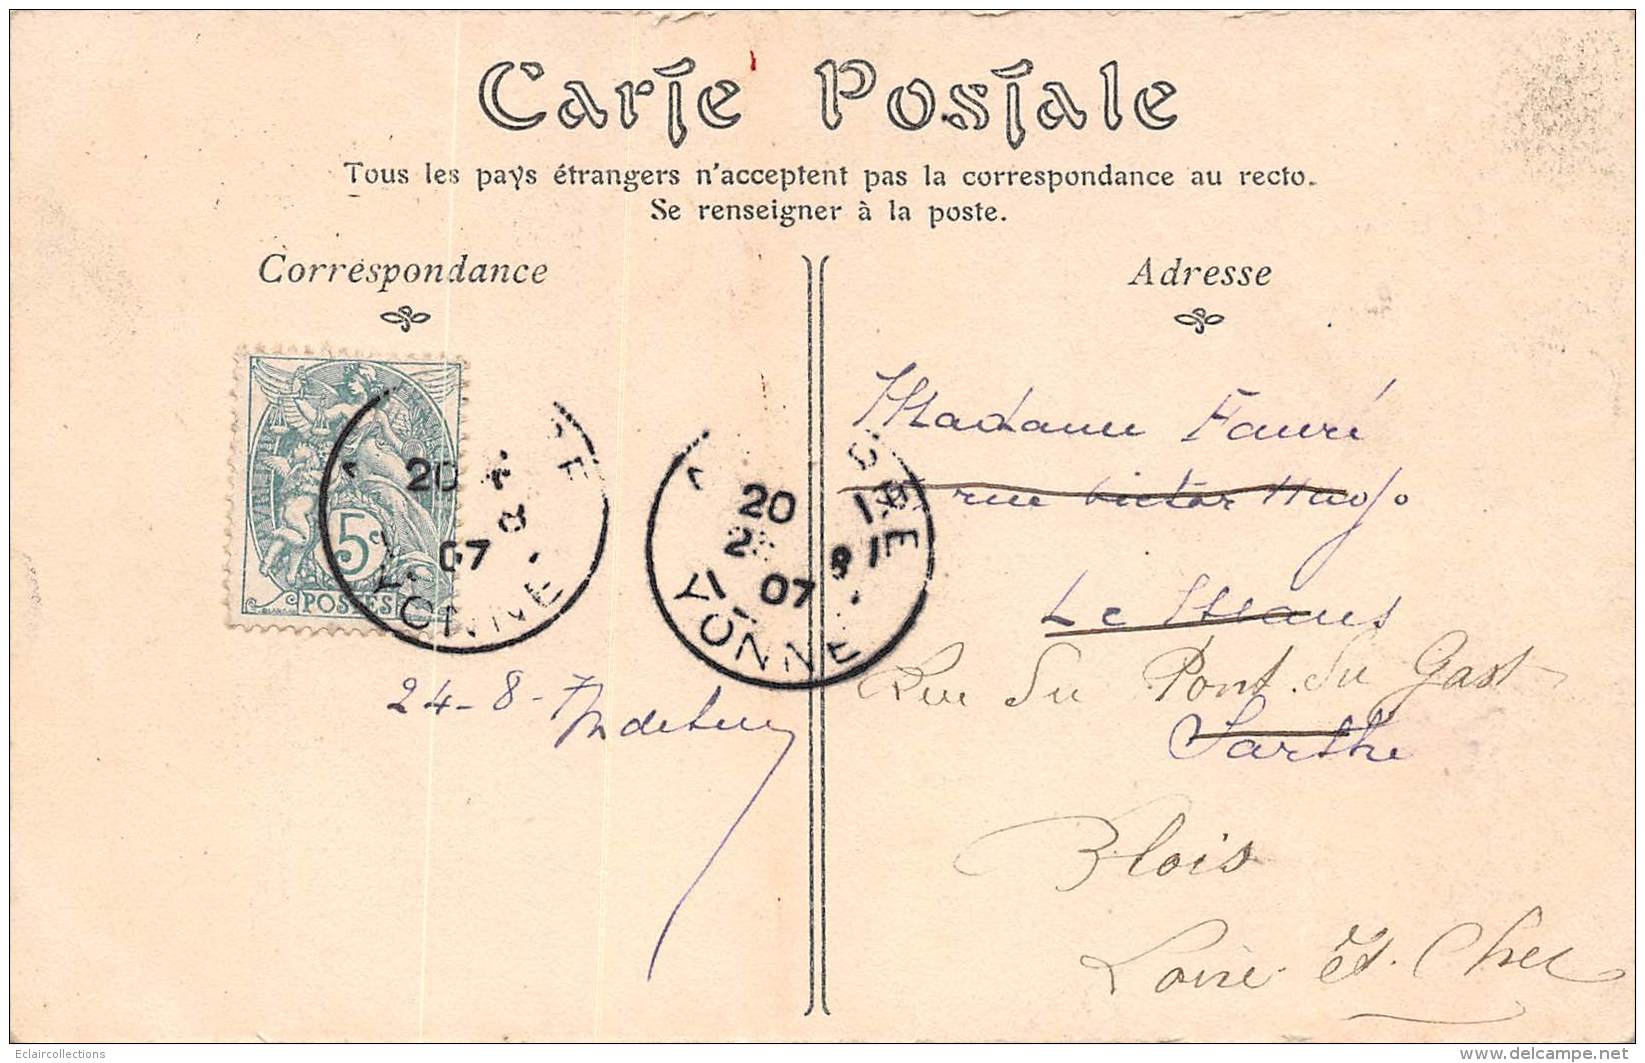 Carte Postale
Tous les pays étrangers n'acceptent pas la correspondance au recto.
Se renseigner à la poste.
Correspondance
Adresse
5c
POSTES
20
07
YONNE
20
07
YONNE
Madame Fauré
rue Victor Hugo
Le Mans
Rue Du Pont Du Gast
Sarthe
24-8-7
Blois
Loire et. Cher
Eclaircollections
delcampe.net